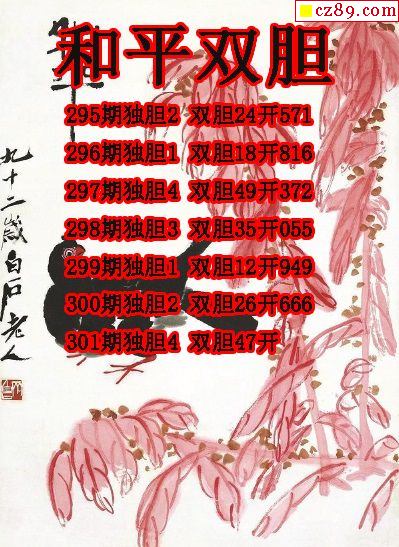 cz89.com
和平双胆
295期独胆2 双胆24开571
296期独胆1 双胆18开816
297期独胆4 双胆49开372
298期独胆3 双胆35开055
299期独胆1 双胆12开949
300期独胆2 双胆26开666
301期独胆4 双胆47开
九十二岁白石老人